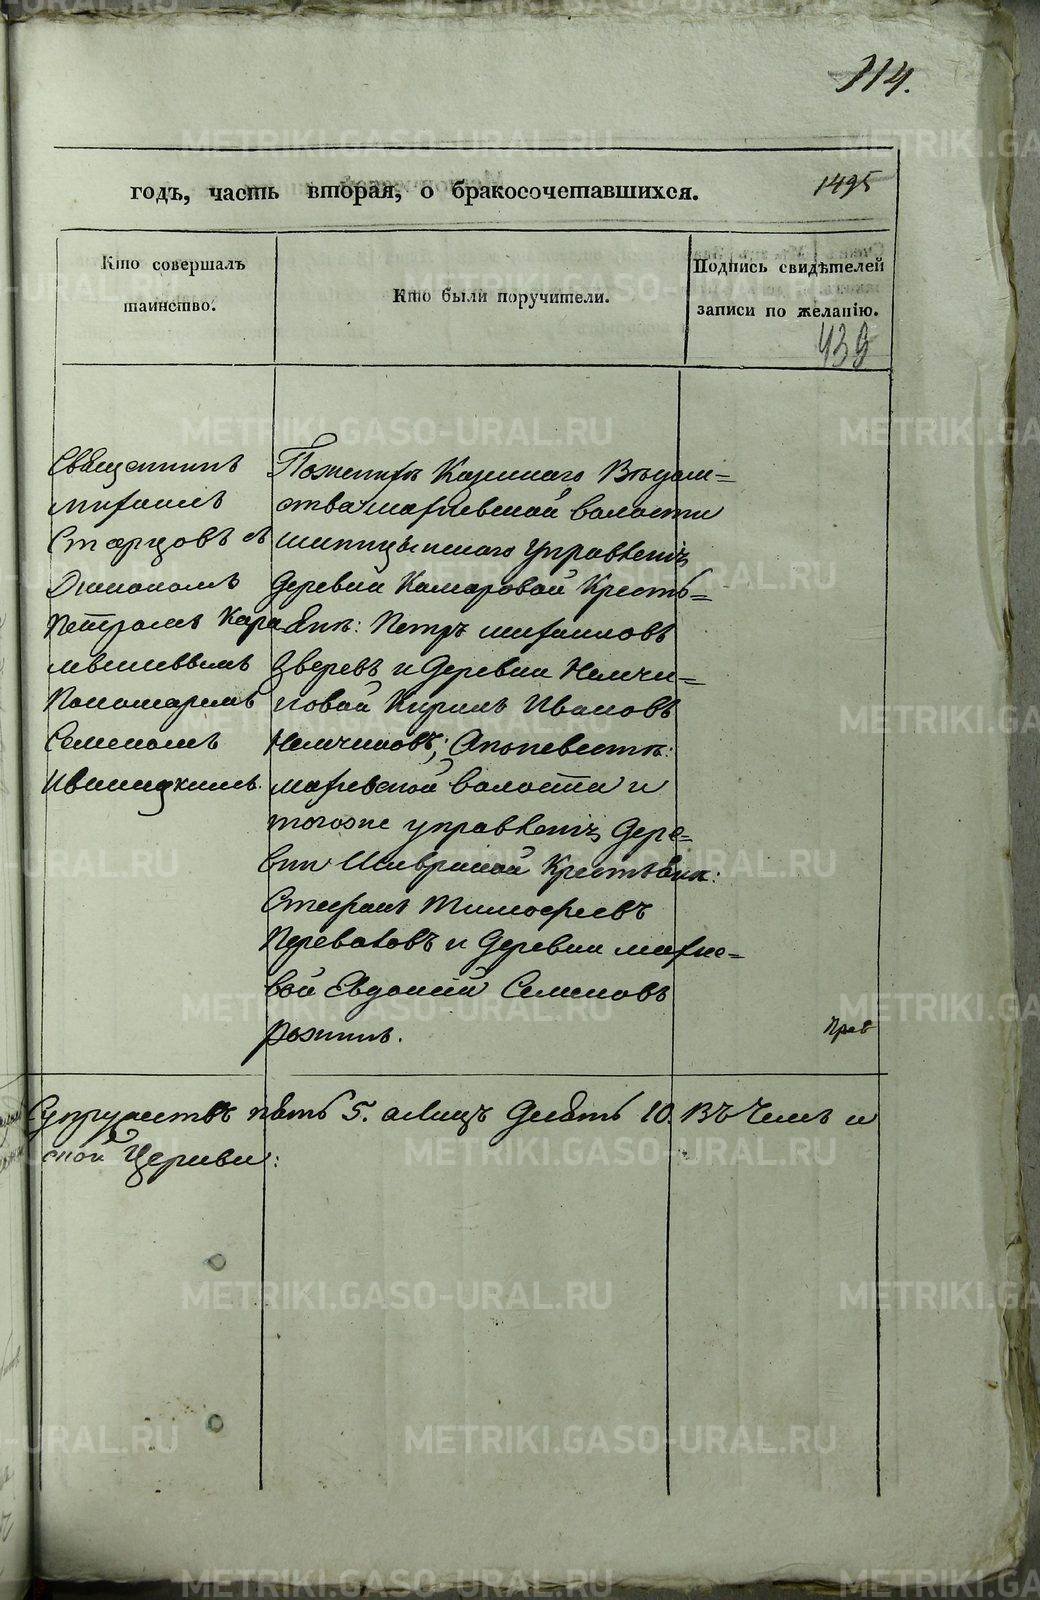 114.
годъ, часть вторая, о бракосочетавшихся.
1495
Кто совершалъ
таинство.
Кто были поручители.
Подпись свидѣтелей
записи по желанію.
439
Священникъ
Михаилъ
Старцовъ съ
Діакономъ
Петромъ Кара
мышевымъ
Пономаремъ
Семеномъ
Ивановскимъ.
По жениху Казеннаго Вѣдом=
ства Махневской волости
управленія
Деревни Комаровой Кресть=
янн: Петръ Михаиловъ
Зверевъ и Деревни Немчи=
новой Кирилъ Ивановъ
Немчиновъ; А по невестѣ:
Махневской волости и
тогоже управленія Дере=
вни Крестьянн:
Стефанъ Тимофеевъ
Переваловъ и Деревни Махне=
вой Евдокий Семеновъ
Рохинъ.
Прав
Супружествъ пять 5. а Лицъ Десять 10. Въ Чемъ и
ской Церкви:
METRIKI.GASO-URAL.RU